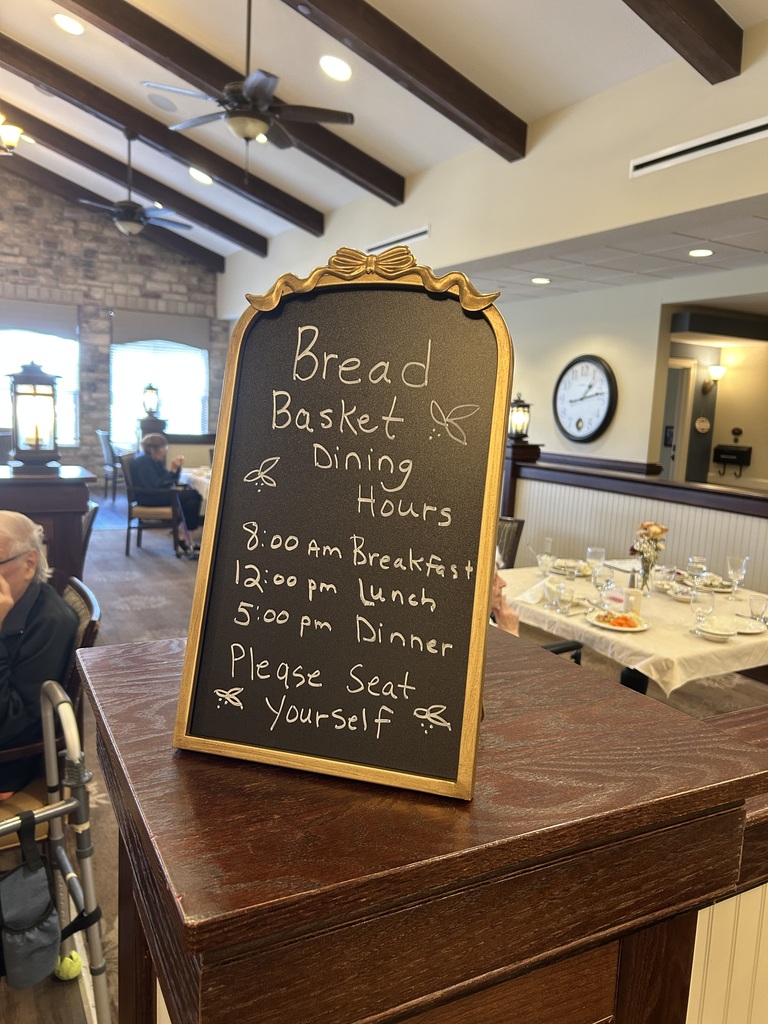 Bread
Basket
Dining
Hours
8:00 Am Breakfast
12:00 pm Lunch
5:00 pm Dinner
Please Seat
Yourself